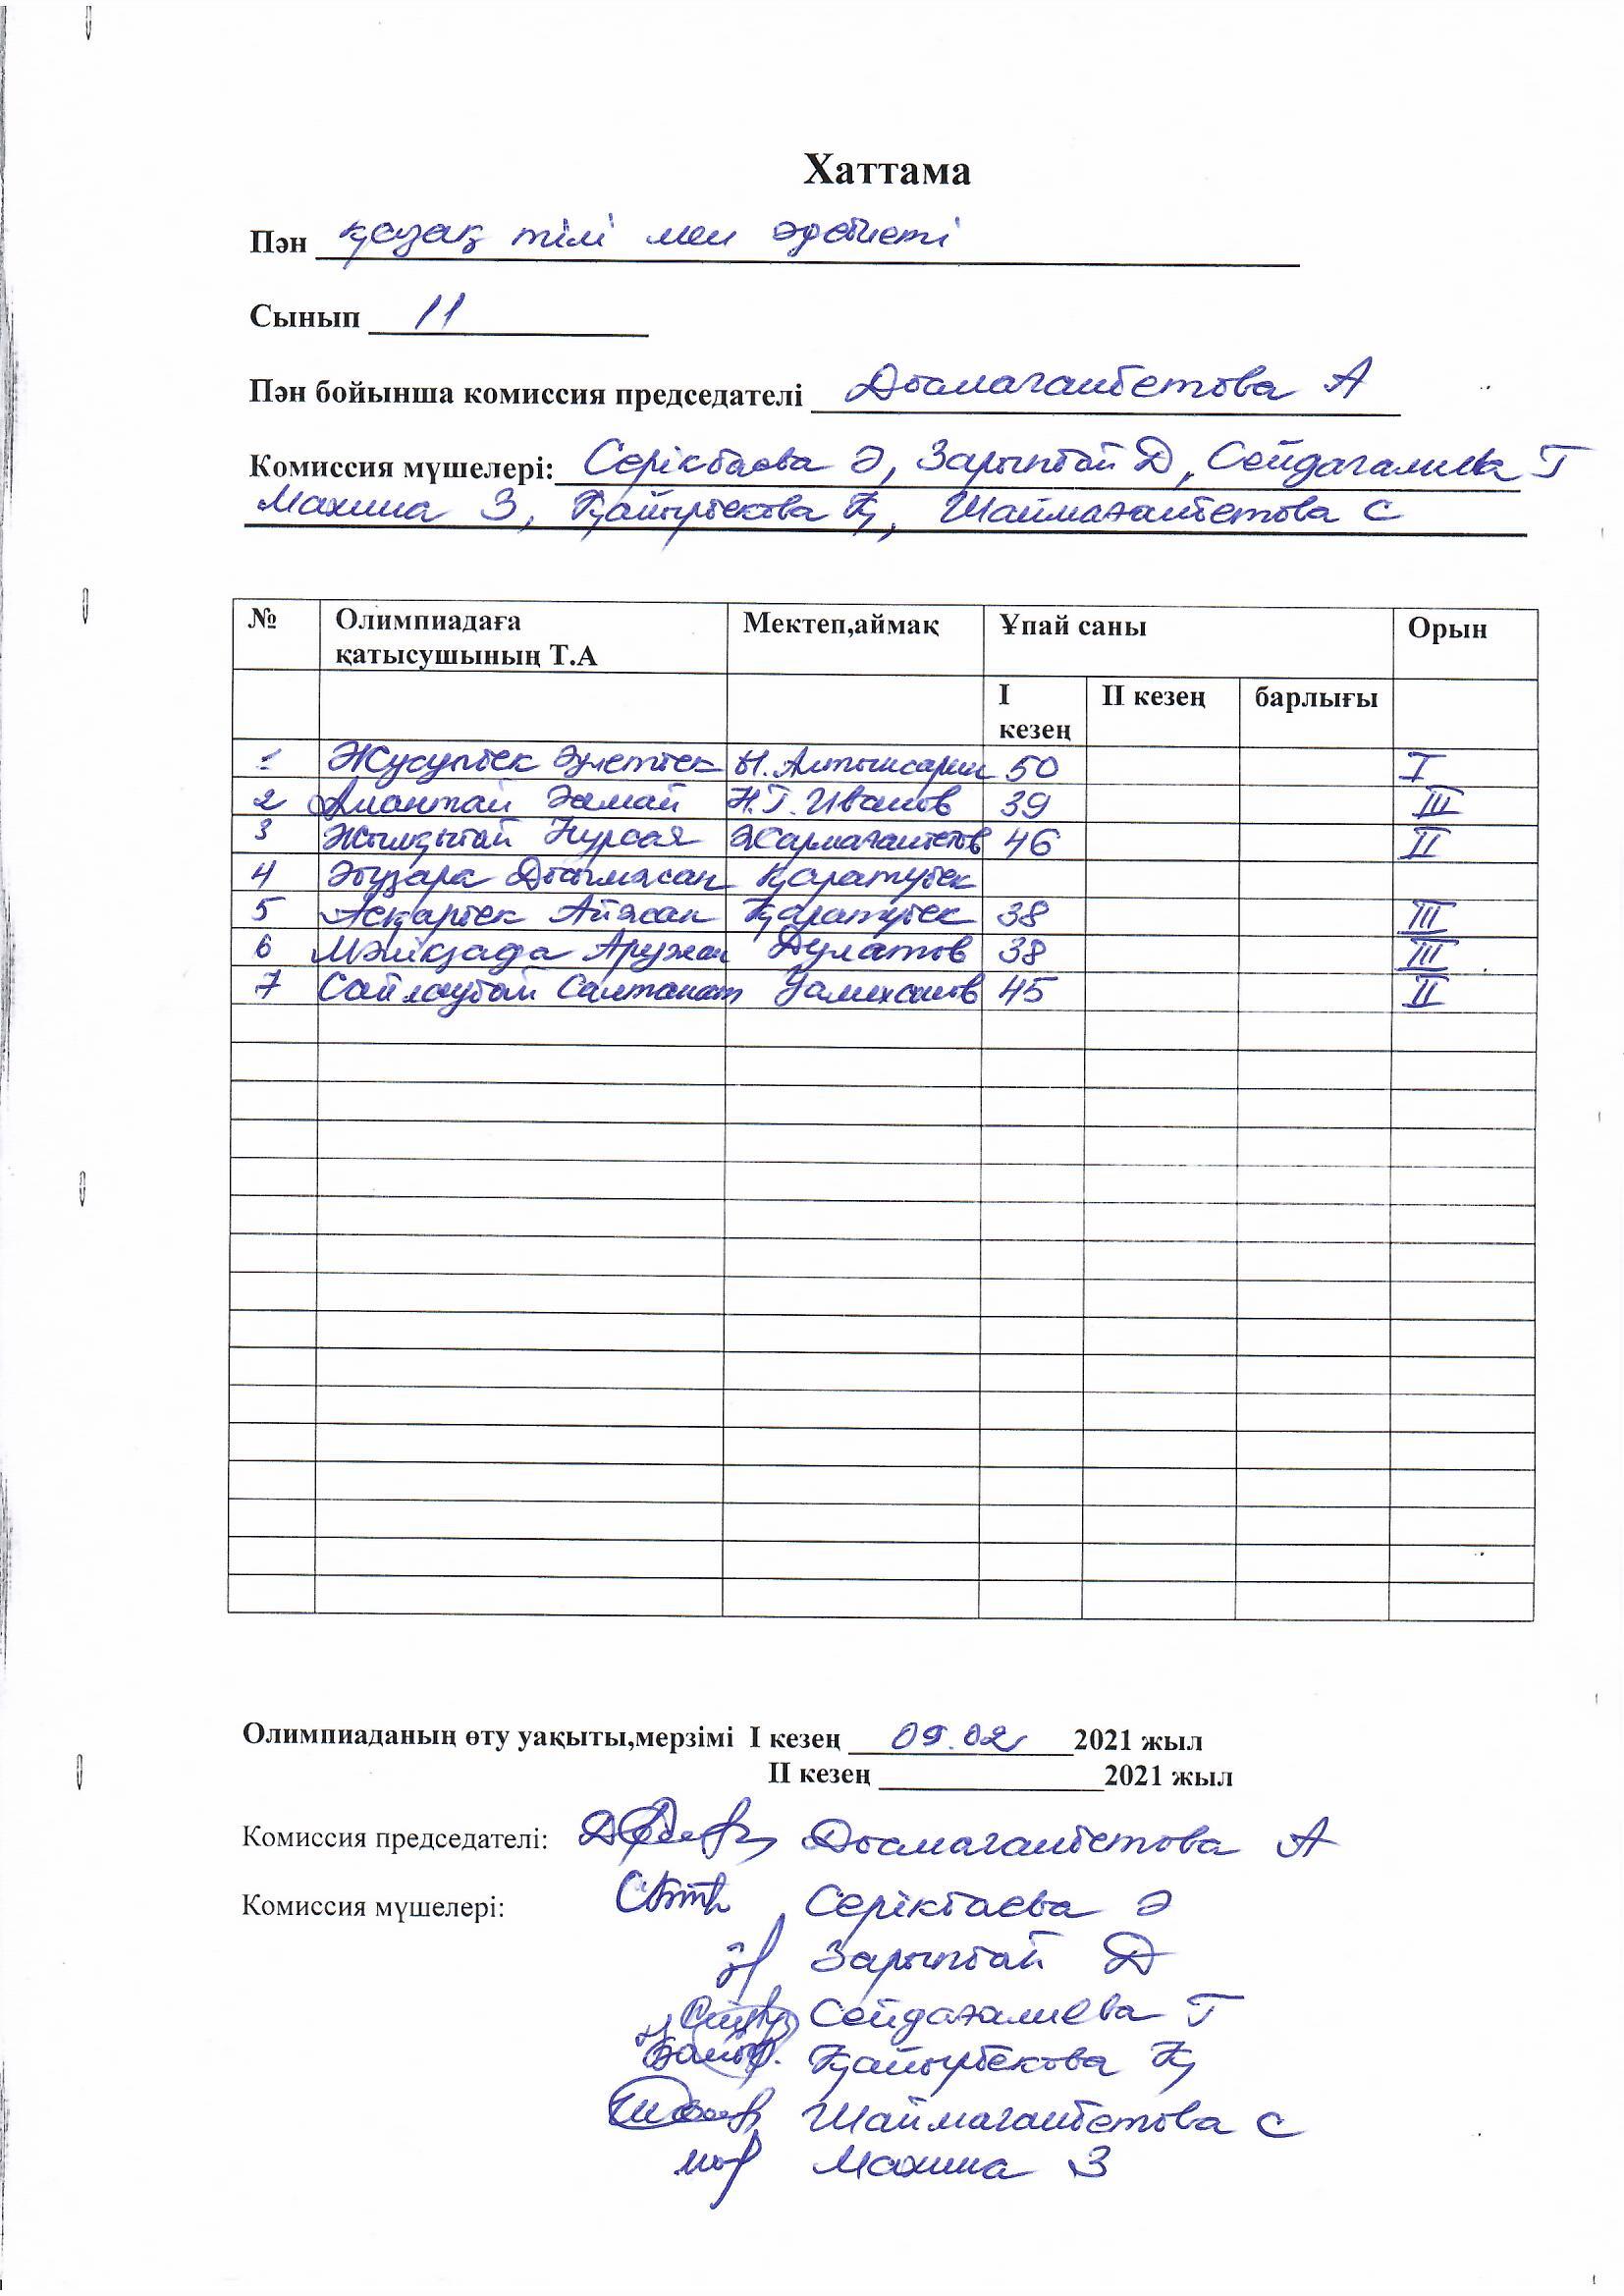 Хаттама
Пән қазақ тілі мен әдебиеті
Сынып 11
Пән бойынша комиссия председателі Досмагамбетова А
Комиссия мүшелері: Серікбаева Ә, Зарыпбай Д, Сейдагалиева Г
Махина З, Қайырбекова Қ, Шаймағамбетова С
№ Олимпиадаға қатысушының Т.А Мектеп,аймақ Ұпай саны Орын
I кезең II кезең барлығы
1 Жусупбек Әулетбек Ы. Алтынсарин 50 I
2 Амантай Н.Г. Иванов 39 III
3 Жылқыбай Нурсая Жармагамбетов 46 II
4 Досымжан Қаратубек
5 Асқарбек Айжан Қаратубек 38 III
6 Аружан Дулатов 38 III
7 Сайлаубай Салтанат 45 II
Олимпиаданың өту уақыты,мерзімі I кезең 09.02 2021 жыл
II кезең 2021 жыл
Комиссия председателі: Досмагамбетова А
Комиссия мүшелері: Серікбаева Ә
Зарыпбай Д
Сейдағалиева Г
Қайырбекова Қ
Шаймагамбетова С
Махина З